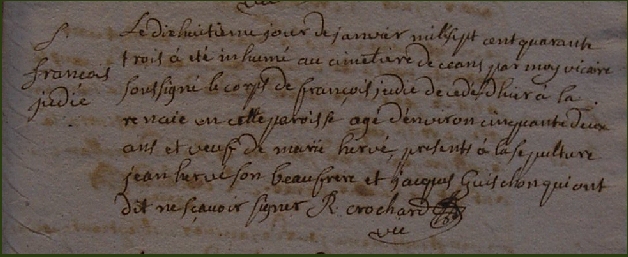 S
françois
judié
Le dixhuitieme jour de janvier mil sept cent quarante
trois a été inhumé au cimetiere de ceans par moy vicaire
soussigné le corps de françois judie decedé d'hier à la
renaie en cette paroisse agé d'environ cinquante deux
ans et veuf de marie hervé, presents à la sepulture
jean hervé son beaufrere et jacques Guischon qui ont
dit ne scavoir signer R. crochard
vic